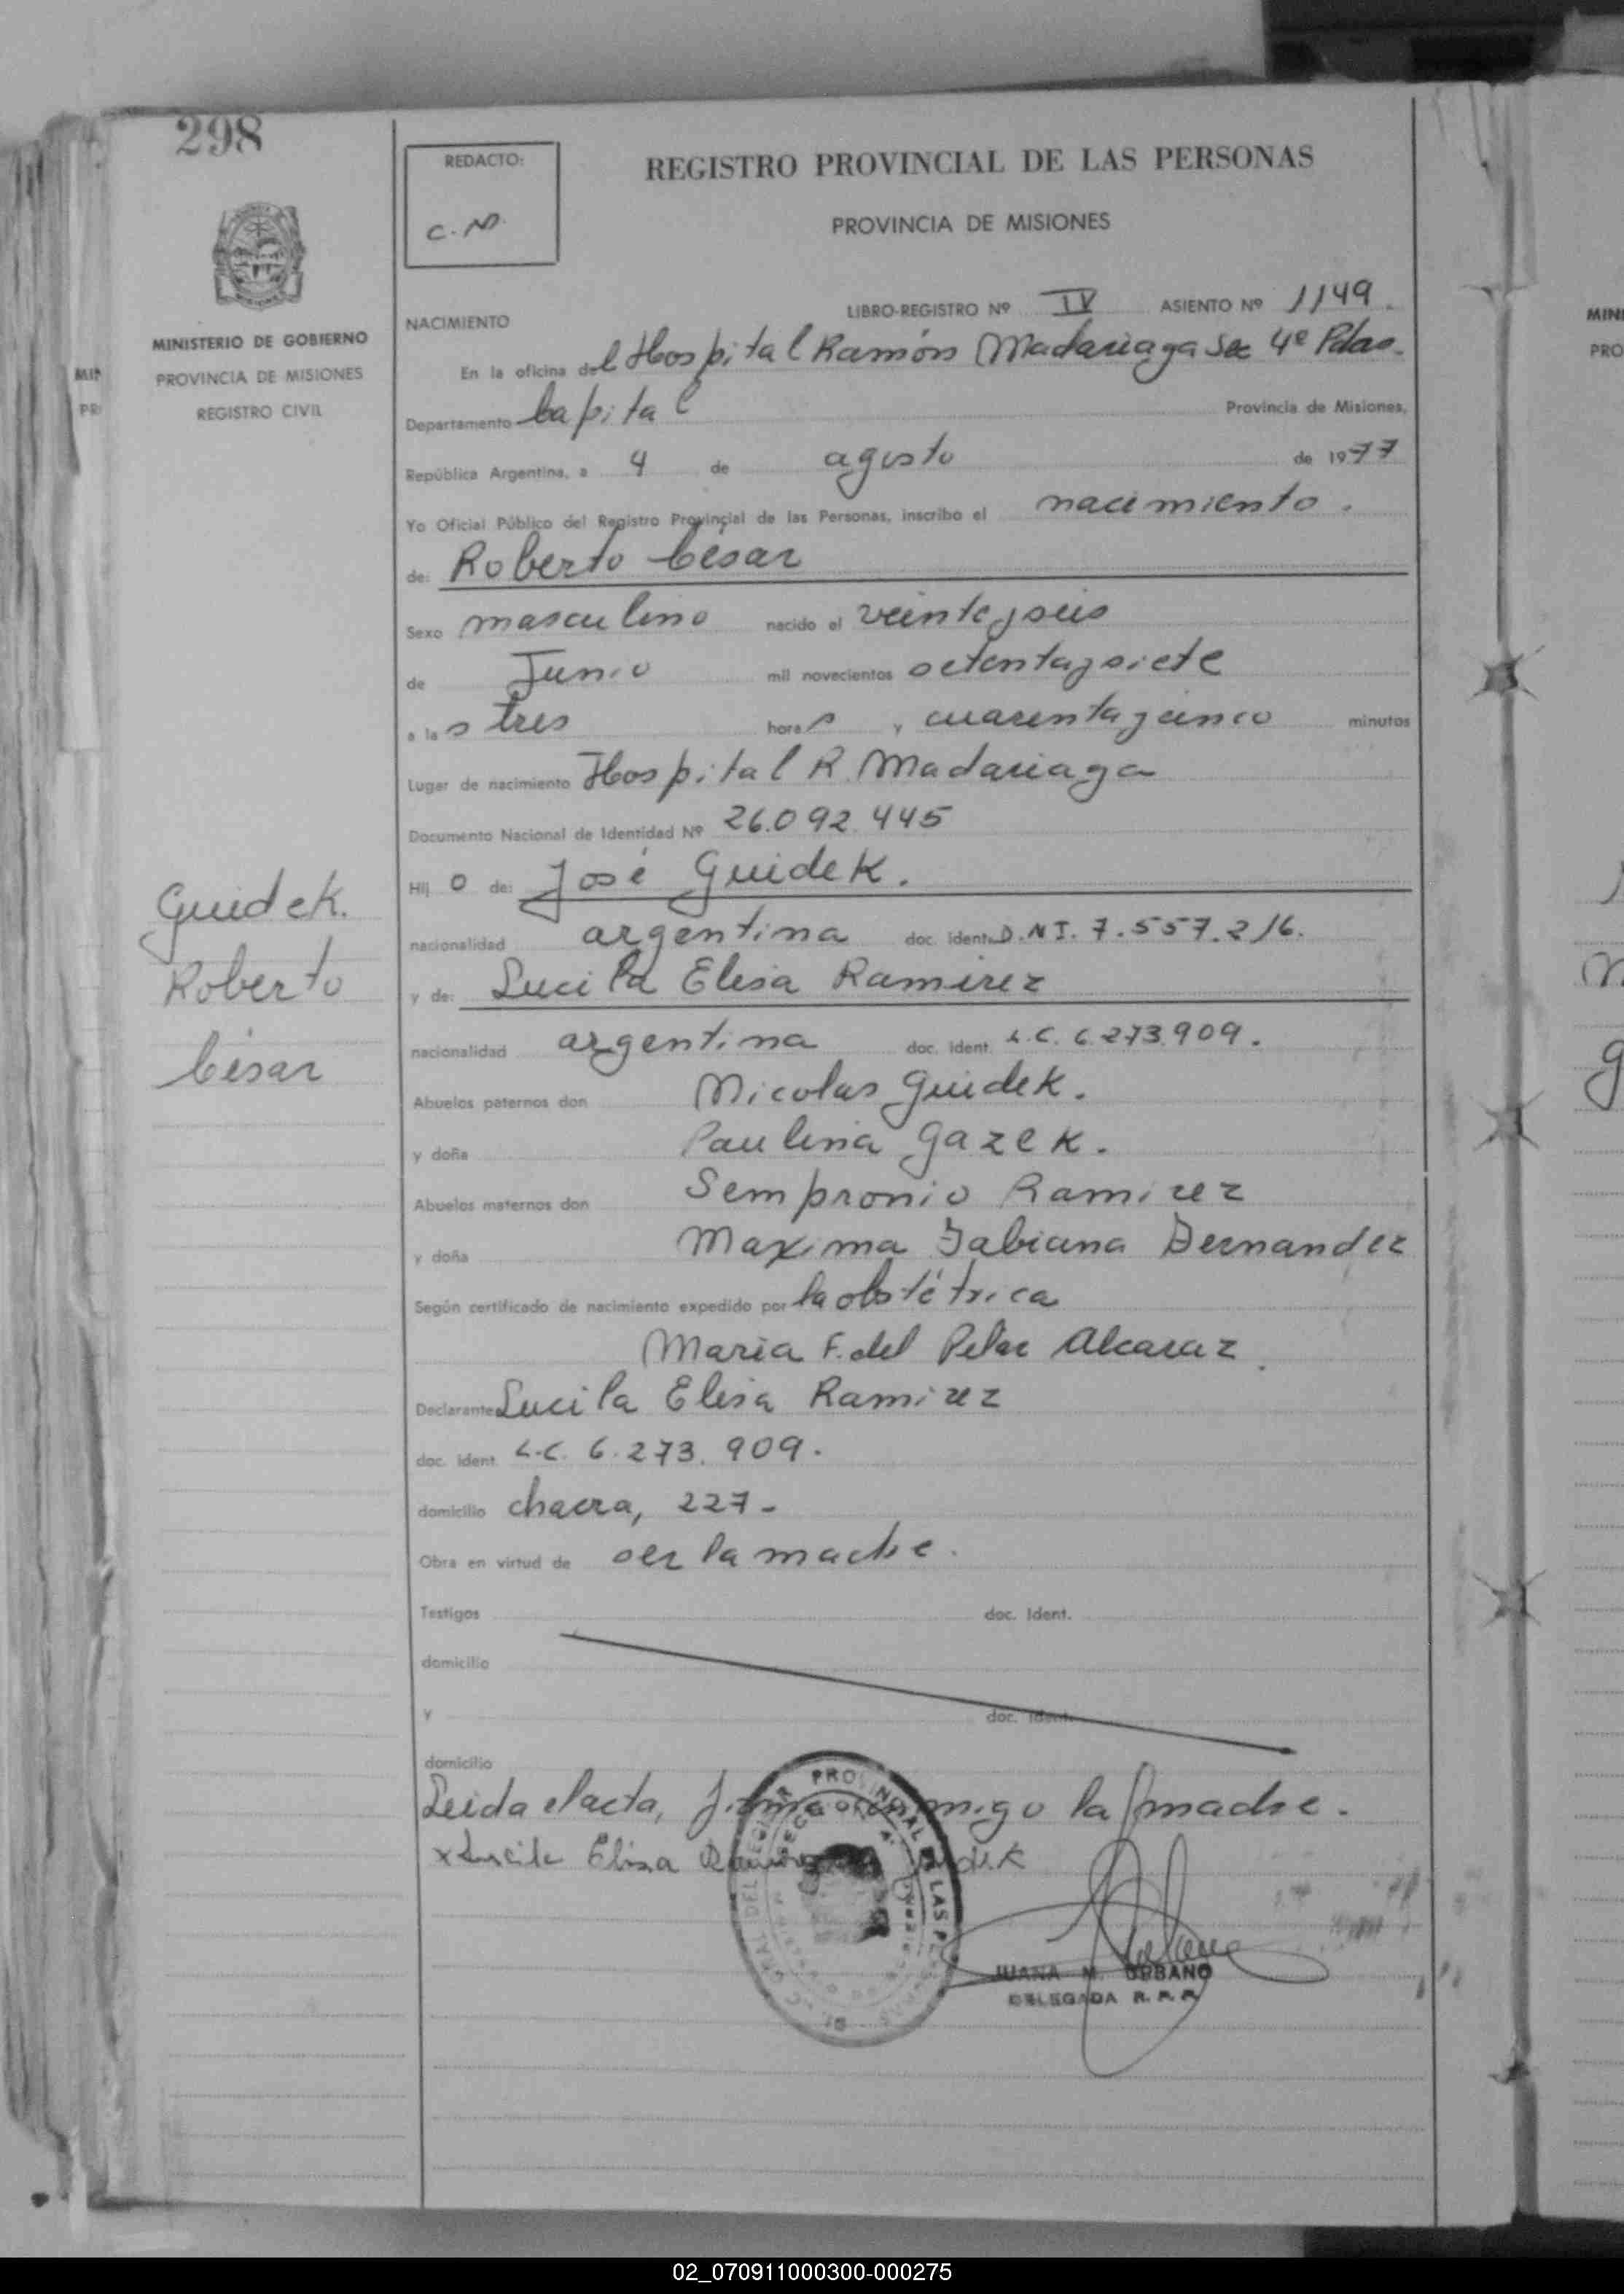 298
REDACTO:
C. N.
REGISTRO PROVINCIAL DE LAS PERSONAS
PROVINCIA DE MISIONES
MINISTERIO DE GOBIERNO
PROVINCIA DE MISIONES
REGISTRO CIVIL
NACIMIENTO LIBRO-REGISTRO Nº IV ASIENTO Nº 1149.
En la oficina del Hospital Ramón Madariaga Sec 4ª Pdas.
Departamento Capital Provincia de Misiones,
República Argentina, a 4 de agosto de 1977
Yo Oficial Público del Registro Provincial de las Personas, inscribo el nacimiento.
de: Roberto César
Sexo masculino nacido el veinteyseis
de Junio mil novecientos setentaysiete
a las tres horas y cuarentaycinco minutos
Lugar de nacimiento Hospital R. Madariaga
Documento Nacional de Identidad Nº 26.092.445
Hijo de: José Guidek.
nacionalidad argentina doc. ident. D.N.I. 7.557.216.
y de: Lucila Elisa Ramirez
nacionalidad argentina doc. ident. L.C. 6.273.909.
Abuelos paternos don Nicolas Guidek.
y doña Paulina Gazek.
Abuelos maternos don Sempronio Ramirez
y doña Maxima Fabiana Fernandez
Según certificado de nacimiento expedido por la obstétrica
Maria F. del Pilar Alcaraz.
Declarante Lucila Elisa Ramirez
doc. ident. L.C. 6.273.909.
domicilio chacra, 227-
Obra en virtud de ser la madre.
Testigos doc. ident.
domicilio
y doc. ident.
domicilio
Leida el acta, firma conmigo la madre.
x Lucila Elisa
JUANA M. URBANO
DELEGADA R. P. P.
Guidek.
Roberto
César
MIN
PR
MINI
PRO
02_070911000300-000275